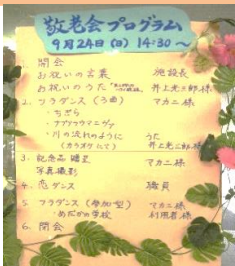 敬老会プログラム
9月24日(日) 14:30〜
1. 開会
お祝いの言葉 施設長
お祝いのうた 井上光三郎様
2. フラダンス(3曲) マカニ様
・ちぎら
・ナプアリマニダマ
・川の流れのように うた
(カラオケにて) 井上光三郎様
3. 記念品 贈呈 マカニ様
写真撮影
4. 恋ダンス 職員
5. フラダンス(参加型) マカニ様
・めだかの学校 利用者様
6. 閉会